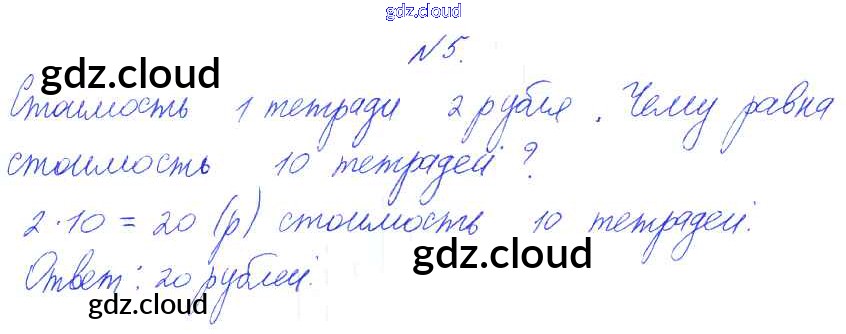 gdz.cloud
N 5.
gdz.cloud gdz.cloud
Стоимость 1 тетради 2 рубля. Чему равна
стоимость 10 тетрадей?
2·10 = 20 (р) стоимость 10 тетрадей.
gdz.cloud
Ответ: 20 рублей.
gdz.cloud gdz.cloud